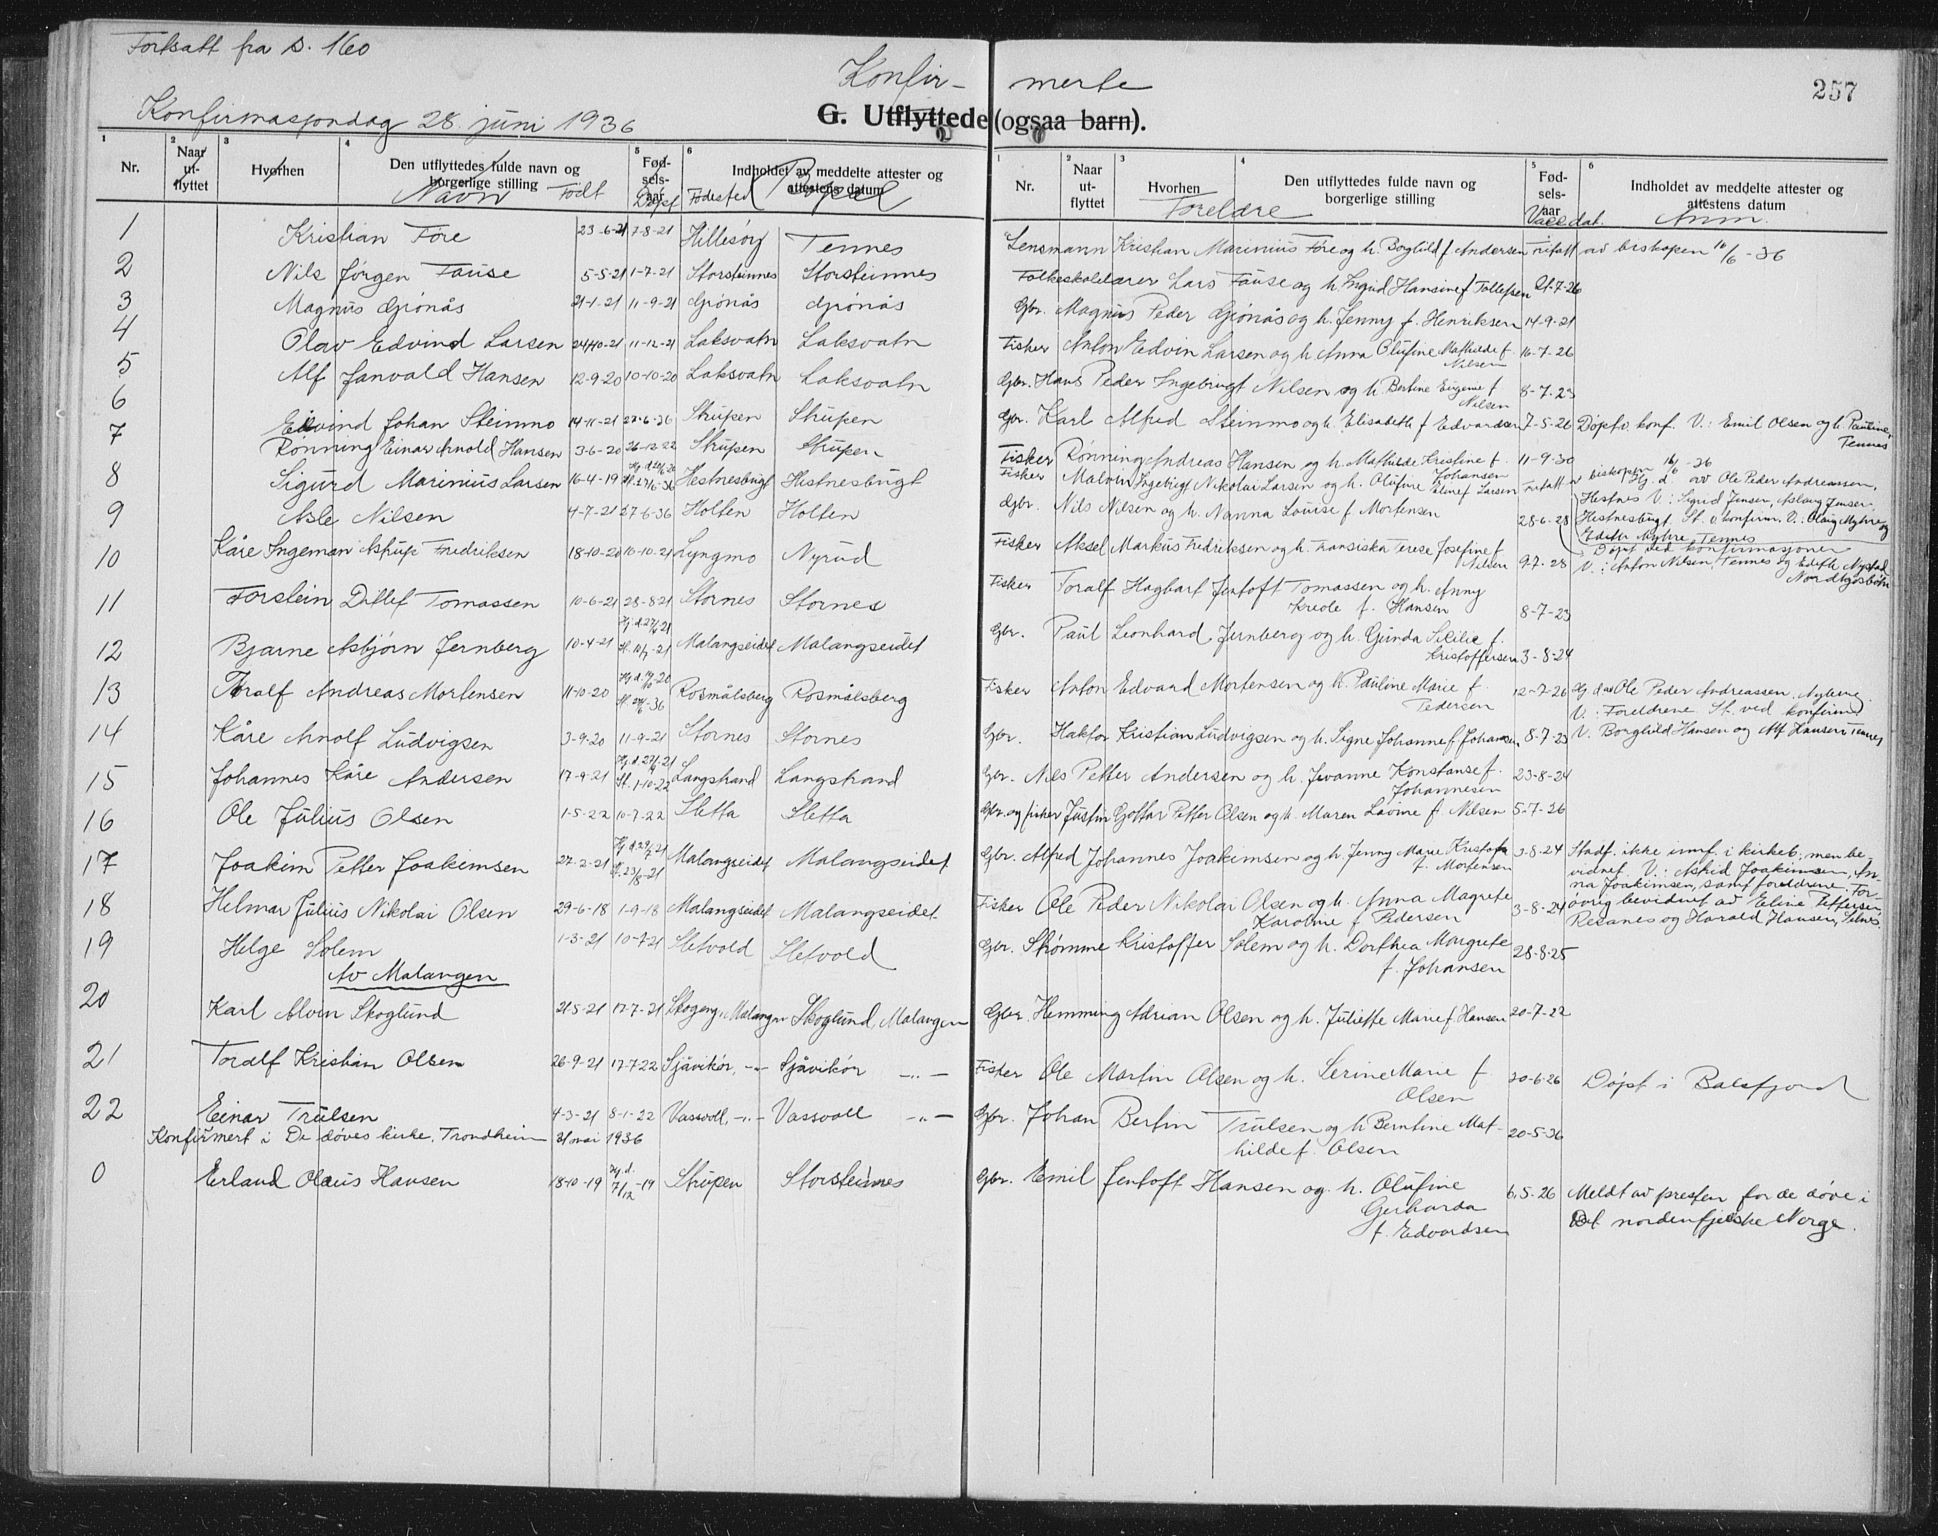 Fortsatt fra s. 160
Konfir- merte
257
Konfirmasjonsdag 28. juni 1936
G. Utflyttede (ogsaa barn).
1 2 3 4 5 6
Nr. Naar ut-flyttet Hvorhen Den utflyttedes fulde navn og borgerlige stilling Fød-sels-aar Indholdet av meddelte attester og attestens datum
Navn Født Døpt Fødested Bopæl
1 2 3 4 5 6
Nr. Naar ut-flyttet Hvorhen Den utflyttedes fulde navn og borgerlige stilling Fød-sels-aar Indholdet av meddelte attester og attestens datum
Foreldre Vacc.dat. Anm.
1 Kristian Føre 23-6-21 7-8-21 Hillesøy Tennes Lensmann Kristian Marinius Føre og h. Borghild f. Andersen Fritatt av biskopen 10/6-36
2 Nils Jørgen Fause 5-5-21 1-7-21 Storsteinnes Storsteinnes Folkeskolelærer Lars Fause og h. Ingrid Hansine f. Tollefsen 21-7-26
3 Magnus Grønås 21-1-21 11-9-21 Grønås Grønås Gbr. Magnus Peder Grønås og h. Jenny f. Henriksen 14-9-21
4 Olav Edvind Larsen 24/10-21 11-12-21 Laksvatn Laksvatn Fisker Anton Edvin Larsen og h. Anna Olufine Mathilde f. Nilsen 16-7-26
5 Alf Janvald Hansen 12-9-20 10-10-20 Laksvatn Laksvatn Gbr. Hans Peder Ingebrigt Nilsen og h. Bertine Eugenie f. Nilsen 8-7-23
6 Eivind Johan Steinmo 14-11-21 27-6-36 Strupen Strupen Gbr. Karl Alfred Steinmo og h. Elisabeth f. Edvardsen 7-5-26 Døpt v. konf. V.: Emil Olsen og h. Pauline, Tennes
7 Rønning Einar Arnold Hansen 3-6-20 26-12-22 Strupen Strupen Fisker Rønning Andreas Hansen og h. Mathilde Kristine f. Johansen 11-9-30
8 Sigurd Marinius Larsen 16-4-19 St. 27/6-36 Hestnesbugt Hestnesbugt Fisker Malvin Ingebrigt Nikolai Larsen og h. Olufine f. Larsen Fritatt av biskopen 16/6-36
Hj. d. av Ole Peder Andreassen,
Hestnes V: Sigrid Jensen, Aslaug Jensen
Hestnesbugt. St. v. konfirm. V.: Olaug Myhre og
Edith Myhre, Tennes
9 Asle Nilsen 4-7-21 27-6-36 Holten Holten Gbr. Nils Nilsen og h. Nanna Louise f. Mortensen 28-6-28 Døpt ved konfirmasjonen
V.: Anton Nilsen, Tennes og Edith Nystad
Nordkjosbotn
10 Kåre Ingeman Astrup Fredriksen 18-10-20 10-10-21 Lyngmo Nyrud Fisker Aksel Markus Fredriksen og h. Fransiska Terese Josefine f. Nilsen 9-7-28
11 Torstein Ditlef Tomassen 10-6-21 28-8-21 Stornes Stornes Fisker Toralf Hagbart Jentoft Tomassen og h. Anny Kreole f. Hansen 8-7-23
12 Bjarne Asbjørn Jernberg 10-4-21 Malangseidet Malangseidet Gbr. Paul Leonhard Jernberg og h. Gunda Silie f. Kristoffersen 3-8-24
13 Toralf Andreas Mortensen 11-10-20 St. 27/6-36 Rosmålsberg Rosmålsberg Fisker Anton Edvard Mortensen og h. Pauline Marie f. Pedersen 12-7-26 Hj. d. av Ole Peder Andreassen, Nybene
V: Foreldrene. St. ved konfirm.
V. Borghild Hansen og Alf Hansen Tennes
14 Kåre Arnolf Ludvigsen 3-9-20 11-9-21 Stornes Stornes Gbr. Haktor Kristian Ludvigsen og h. Signe Johanne f. Johansen 8-7-23
15 Johannes Kåre Andersen 17-9-21 St. 1-10-22 Langstrand Langstrand Gbr. Nils Petter Andersen og h. Jovanne Konstanse f. Johannesen 23-8-24
16 Ole Julius Olsen 1-5-22 10-7-22 Sletta Sletta Gbr. og fisker Justin Gottar Petter Olsen og h. Maren Lovine f. Nilsen 5-7-26
17 Joakim Petter Joakimsen 27-2-21 St. 23/8-21 Malangseidet Malangseidet Gbr. Alfred Johannes Joakimsen og h. Jenny Marie Kristofa f. Mortensen 3-8-24 Stadf. ikke innf. i kirkeb. men be-
vidnet. V.: Astrid Joakimsen, An-
na Joakimsen, samt foreldrene. For-
øvrig bevidnet av Eline Pettersen,
Resanes og Harald Hansen, Selnes.
18 Helmar Julius Nikolai Olsen 29-6-18 1-9-18 Malangseidet Malangseidet Fisker Ole Peder Nikolai Olsen og h. Anna Magrete Karoline f. Pedersen 3-8-24
19 Helge Solem 1-3-21 10-7-21 Sletvold Sletvold Gbr. Strømme Kristoffer Solem og h. Dorthea Margrete f. Johansen 28-8-25
Av Malangen
20 Karl Alvin Skoglund 21-5-21 17-7-21 Skogeng, Malangen Skoglund, Malangen Gbr. Hemming Adrian Olsen og h. Juliette Marie f. Hansen 20-7-22
21 Toralf Kristian Olsen 26-9-21 17-7-22 Sjåvikør, -"- Sjåvikør -"- Fisker Ole Martin Olsen og h. Serine Marie f. Olsen 20-6-26 Døpt i Balsfjord
22 Einar Trulsen 4-3-21 8-1-22 Vassvoll, -"- Vassvoll -"- Gbr. Johan Bertin Trulsen og h. Berntine Mat-hilde f. Olsen 20-5-36
Konfirmert i De døves kirke, Trondheim 31 mai 1936
0 Erland Olaus Hansen 18-10-19 Hj. d. 7/12-19 Strupen Storsteinnes Gbr. Emil Jentoft Hansen og h. Olufine Gerharda f. Edvardsen 6-5-26 Meldt av presten for de døve i
Det nordenfjelske Norge.